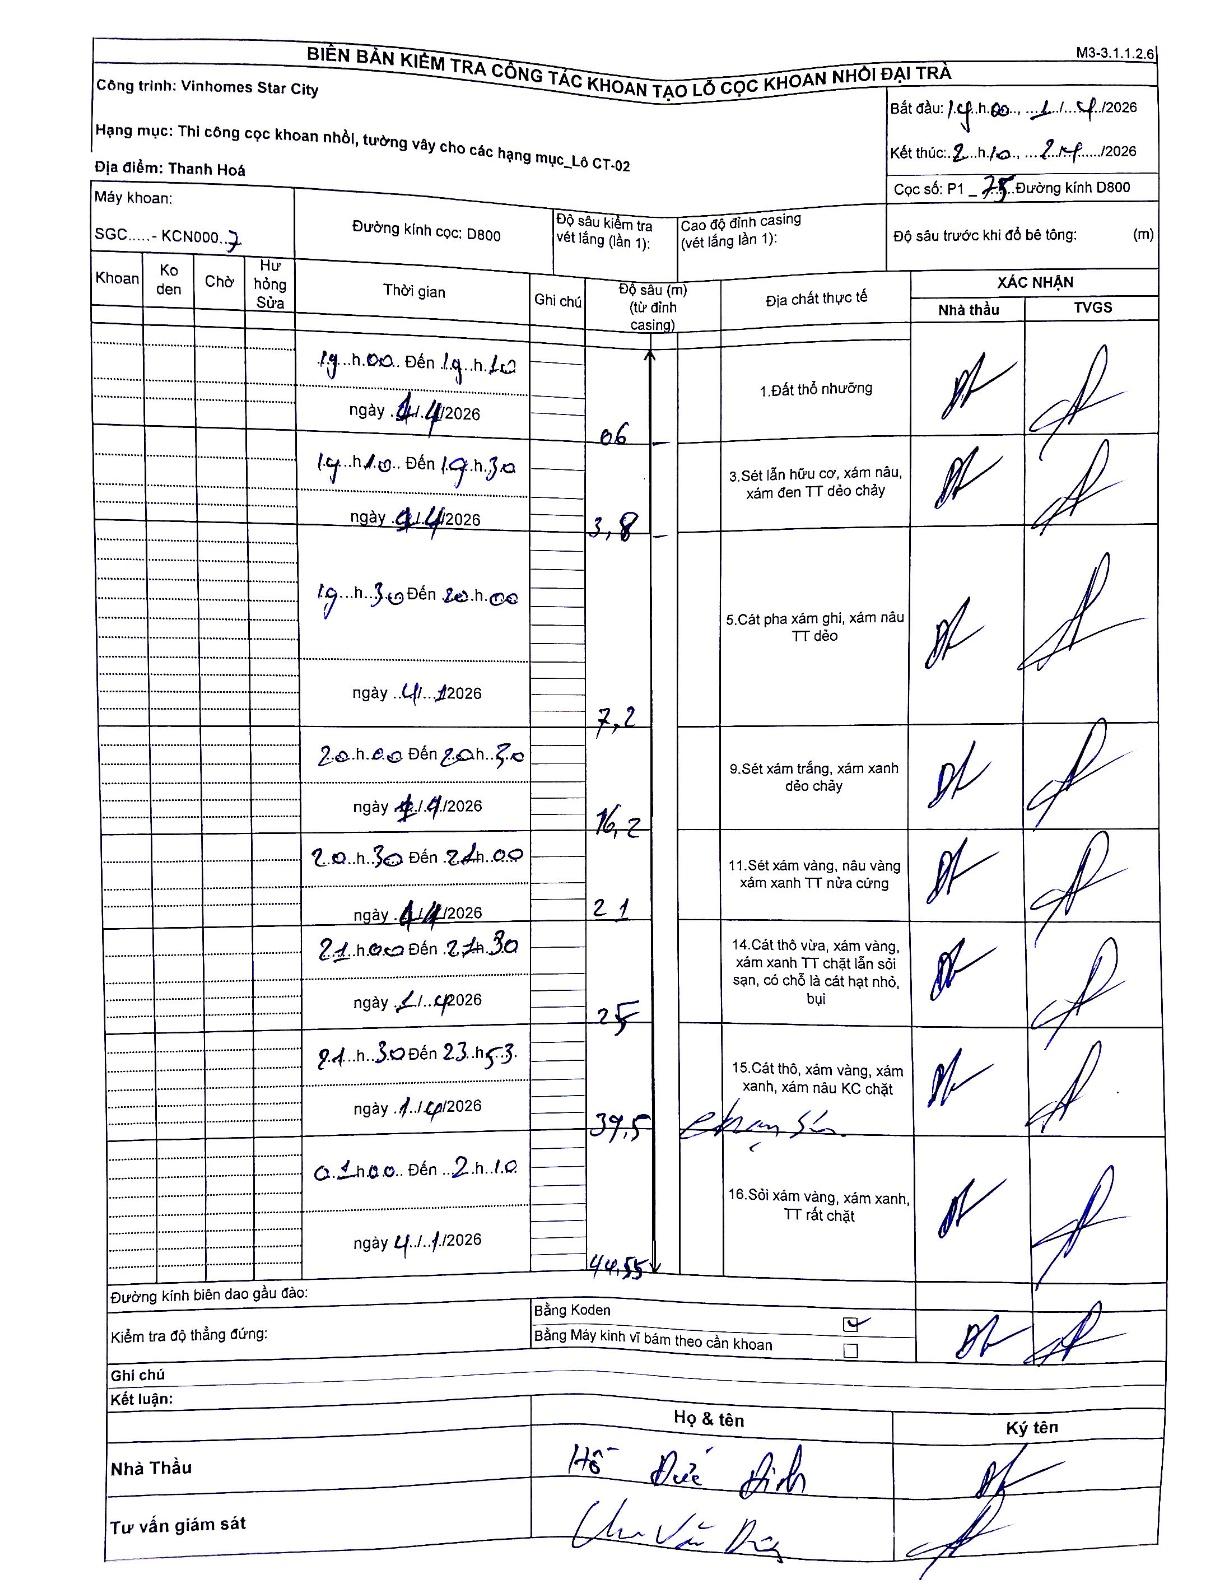 M3-3.1.1.2.6
BIÊN BẢN KIỂM TRA CÔNG TÁC KHOAN TẠO LỖ CỌC KHOAN NHỒI ĐẠI TRÀ
Công trình: Vinhomes Star City
Bắt đầu: 19.h.00., ...1../...4./2026
Hạng mục: Thi công cọc khoan nhồi, tường vây cho các hạng mục_Lô CT-02
Kết thúc:.2...h.10., .../2026
Địa điểm: Thanh Hoá
Cọc số: P1 _ 75..Đường kính D800
Máy khoan:
SGC.....- KCN000..7
Đường kính cọc: D800
Độ sâu kiểm tra
vét lắng (lần 1):
Cao độ đỉnh casing
(vét lắng lần 1):
Độ sâu trước khi đổ bê tông: (m)
Khoan
Ko
den
Chờ
Hư
hỏng
Sửa
Thời gian
Ghi chú
Độ sâu (m)
(từ đỉnh
casing)
Địa chất thực tế
XÁC NHẬN
Nhà thầu
TVGS
19...h.00.. Đến 19..h.10
ngày .1./.4/2026
06
1.Đất thổ nhưỡng
19...h.10.. Đến 19.h.30
ngày ./.4/2026
3,8
3.Sét lẫn hữu cơ, xám nâu,
xám đen TT dẻo chảy
19...h..30 Đến 20.h.00
ngày ..4/...12026
7,2
5.Cát pha xám ghi, xám nâu
TT dẻo
20.h.00 Đến 20h..30
ngày ./.4./2026
16,2
9.Sét xám trắng, xám xanh
dẻo chảy
20..h..30 Đến .21h.00
ngày ./.4/2026
21
11.Sét xám vàng, nâu vàng
xám xanh TT nửa cứng
21..h.00 Đến .21h.30
ngày .1/..4/2026
25
14.Cát thô vừa, xám vàng,
xám xanh TT chặt lẫn sỏi
sạn, có chỗ là cát hạt nhỏ,
bụi
21...h..30 Đến 23.h53.
ngày .1../4/2026
39,5
15.Cát thô, xám vàng, xám
xanh, xám nâu KC chặt
chạm sỏi
01h00.. Đến ..2.h..10
ngày 4./..1./2026
44,55
16.Sỏi xám vàng, xám xanh,
TT rất chặt
Đường kính biên dao gầu đào:
Kiểm tra độ thẳng đứng:
Bằng Koden
Bằng Máy kinh vĩ bám theo cần khoan
Ghi chú
Kết luận:
Họ & tên
Ký tên
Nhà Thầu
Hồ Đức Định
Tư vấn giám sát
Chu Văn Dũng